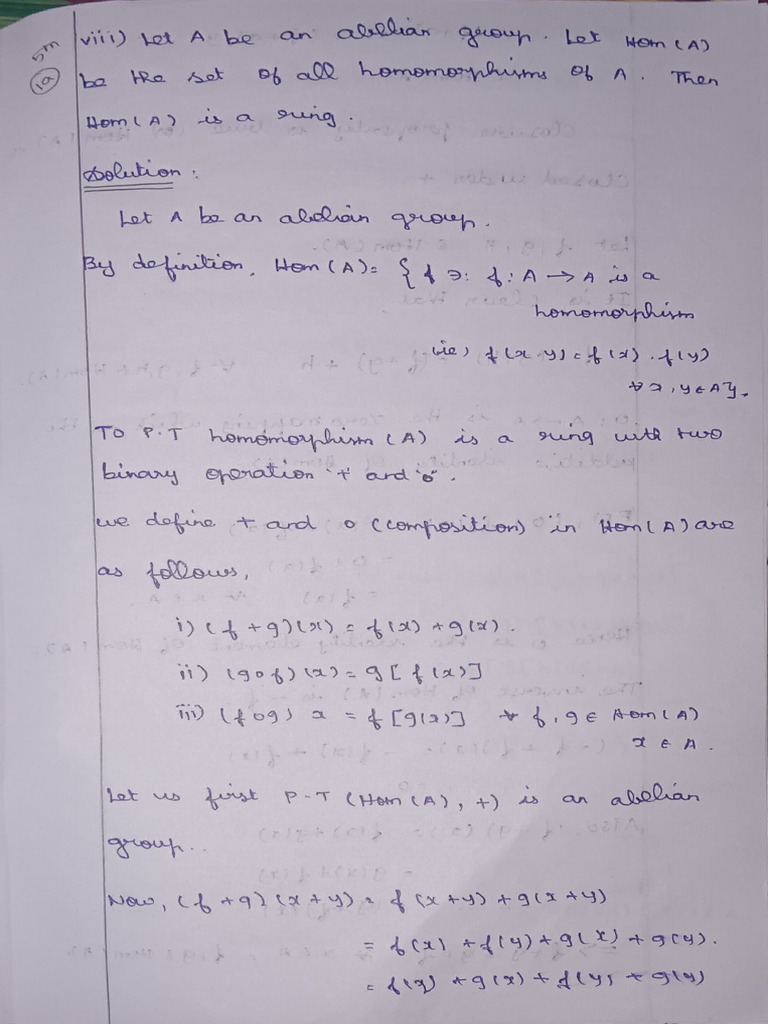 5m
19
viii) Let A be an abelian group. Let Hom(A)
be the set of all homomorphisms of A. Then
Hom(A) is a ring.
Solution:
Let A be an abelian group.
By definition, Hom(A) = { f ∋: f: A → A is a
homomorphism
(ie) f(x y) = f(x) . f(y)
∀ x, y ∈ A}.
To P.T homomorphism (A) is a ring with two
binary operation '+' and 'o'.
we define + and o (composition) in Hom(A) are
as follows,
i) (f + g)(x) = f(x) + g(x).
ii) (g o f)(x) = g[f(x)]
iii) (f o g) x = f[g(x)] ∀ f, g ∈ Hom(A)
x ∈ A.
Let us first P.T (Hom(A), +) is an abelian
group..
Now, (f + g)(x + y) = f(x + y) + g(x + y)
= f(x) + f(y) + g(x) + g(y).
= f(x) + g(x) + f(y) + g(y)